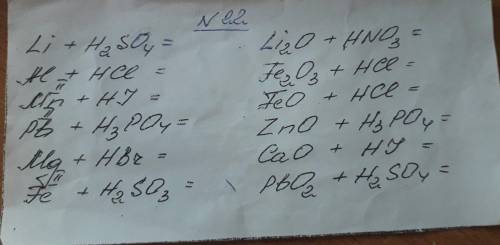 N 22
Li + H₂SO₄ =
Al + HCl =
Mn + HJ =
II
Pb + H₃PO₄ =
Mg + HBr =
II
Fe + H₂SO₃ =
Li₂O + HNO₃ =
Fe₂O₃ + HCl =
FeO + HCl =
ZnO + H₃PO₄ =
CaO + HJ =
PbO₂ + H₂SO₄ =